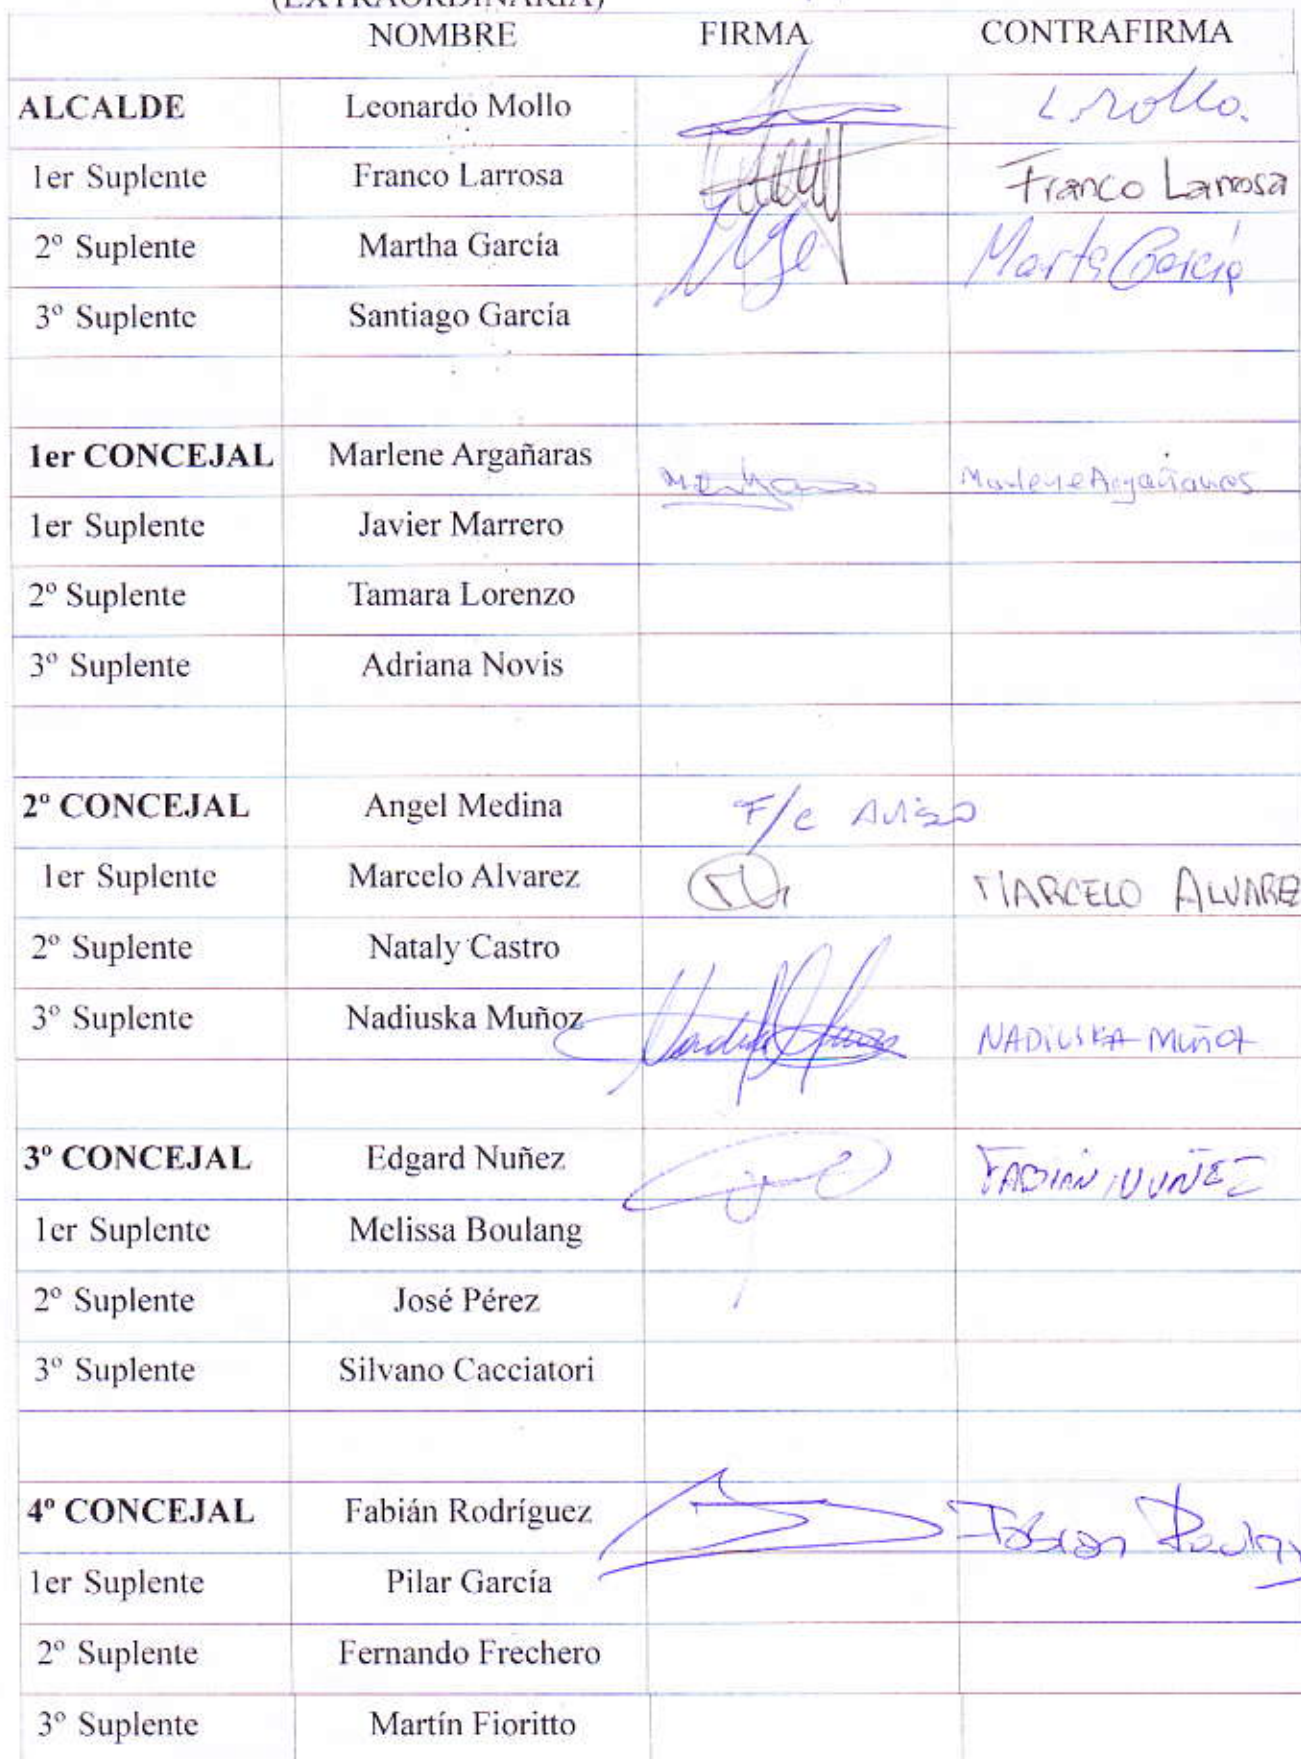 (EXTRAORDINARIA)
NOMBRE FIRMA CONTRAFIRMA
ALCALDE Leonardo Mollo L Mollo.
1er Suplente Franco Larrosa Franco Larrosa
2º Suplente Martha García Marta García
3º Suplente Santiago García
1er CONCEJAL Marlene Argañaras Marlene Argañaras
1er Suplente Javier Marrero
2º Suplente Tamara Lorenzo
3º Suplente Adriana Novis
2º CONCEJAL Angel Medina F/c Aviso
1er Suplente Marcelo Alvarez MARCELO ALVAREZ
2º Suplente Nataly Castro
3º Suplente Nadiuska Muñoz NADIUSKA MUÑOZ
3º CONCEJAL Edgard Nuñez FABIÁN NUÑEZ
1er Suplente Melissa Boulang
2º Suplente José Pérez
3º Suplente Silvano Cacciatori
4º CONCEJAL Fabián Rodríguez Fabian
1er Suplente Pilar García
2º Suplente Fernando Frechero
3º Suplente Martín Fioritto